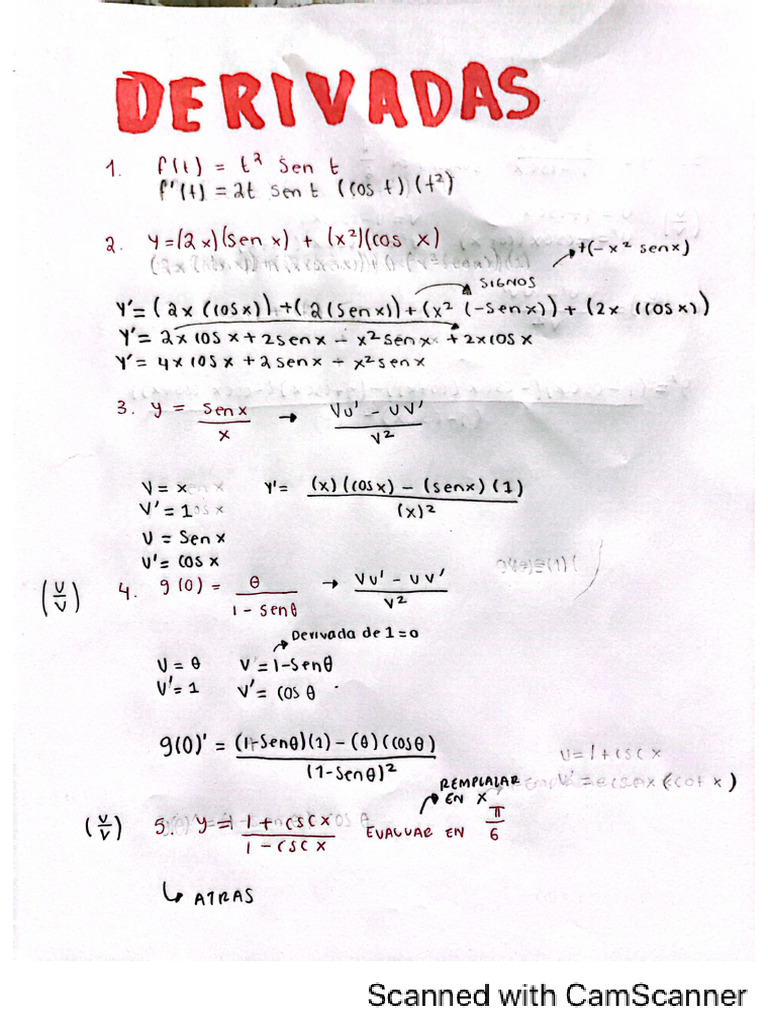 DERIVADAS
1. f(t) = t² sen t
f'(t) = 2t sen t (cos t) (t²)
2. y=(2x)(sen x) + (x²)(cos x)
+(-x² senx)
SIGNOS
Y'= (2x (cosx)) + (2(senx)) + (x² (-senx)) + (2x (cosx))
Y'= 2x cos x + 2senx - x²senx + 2xcosx
Y'= 4x cosx + 2senx - x²senx
3. y = senx / x → Vu' - UV' / V²
V = x
V' = 1
U = Senx
U' = cos x
Y'= (x)(cosx) - (senx)(1) / (x)²
(U/V) 4. g(θ) = θ / 1 - senθ → Vu' - UV' / V²
Derivada de 1=0
U = θ V=1-Senθ
U'=1 V'= cos θ
g(θ)' = (1-Senθ)(1) - (θ)(cosθ) / (1-Senθ)²
U=1+csc x
REMPLAZAR
EN X
(U/V) 5. y = 1+cscx / 1-cscx EVALUAR EN π/6
↳ ATRAS
Scanned with CamScanner